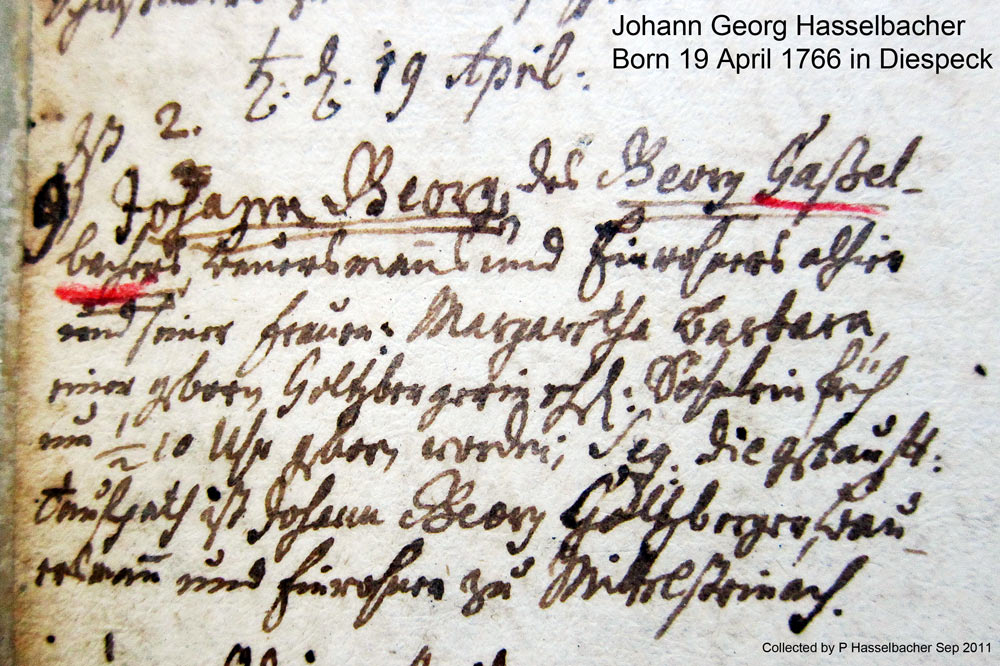 Johann Georg Hasselbacher
Born 19 April 1766 in Diespeck
19 April:
Ist 2.
9 Johann Georg, des Georg Haßel-
bachers, Bauersmanns und Einwohners alhier
und seiner Frauen: Margaretha Barbara,
einer geborn Holtzbergerin ehel: Söhnlein früh
um 1/2 10 Uhr geborn worden, die getauft.
Taufpath ist Johann Georg Holtzberger, Bau
ersmann und Einwohner zu Mittelsteinach.
April
Collected by P Hasselbacher Sep 2011